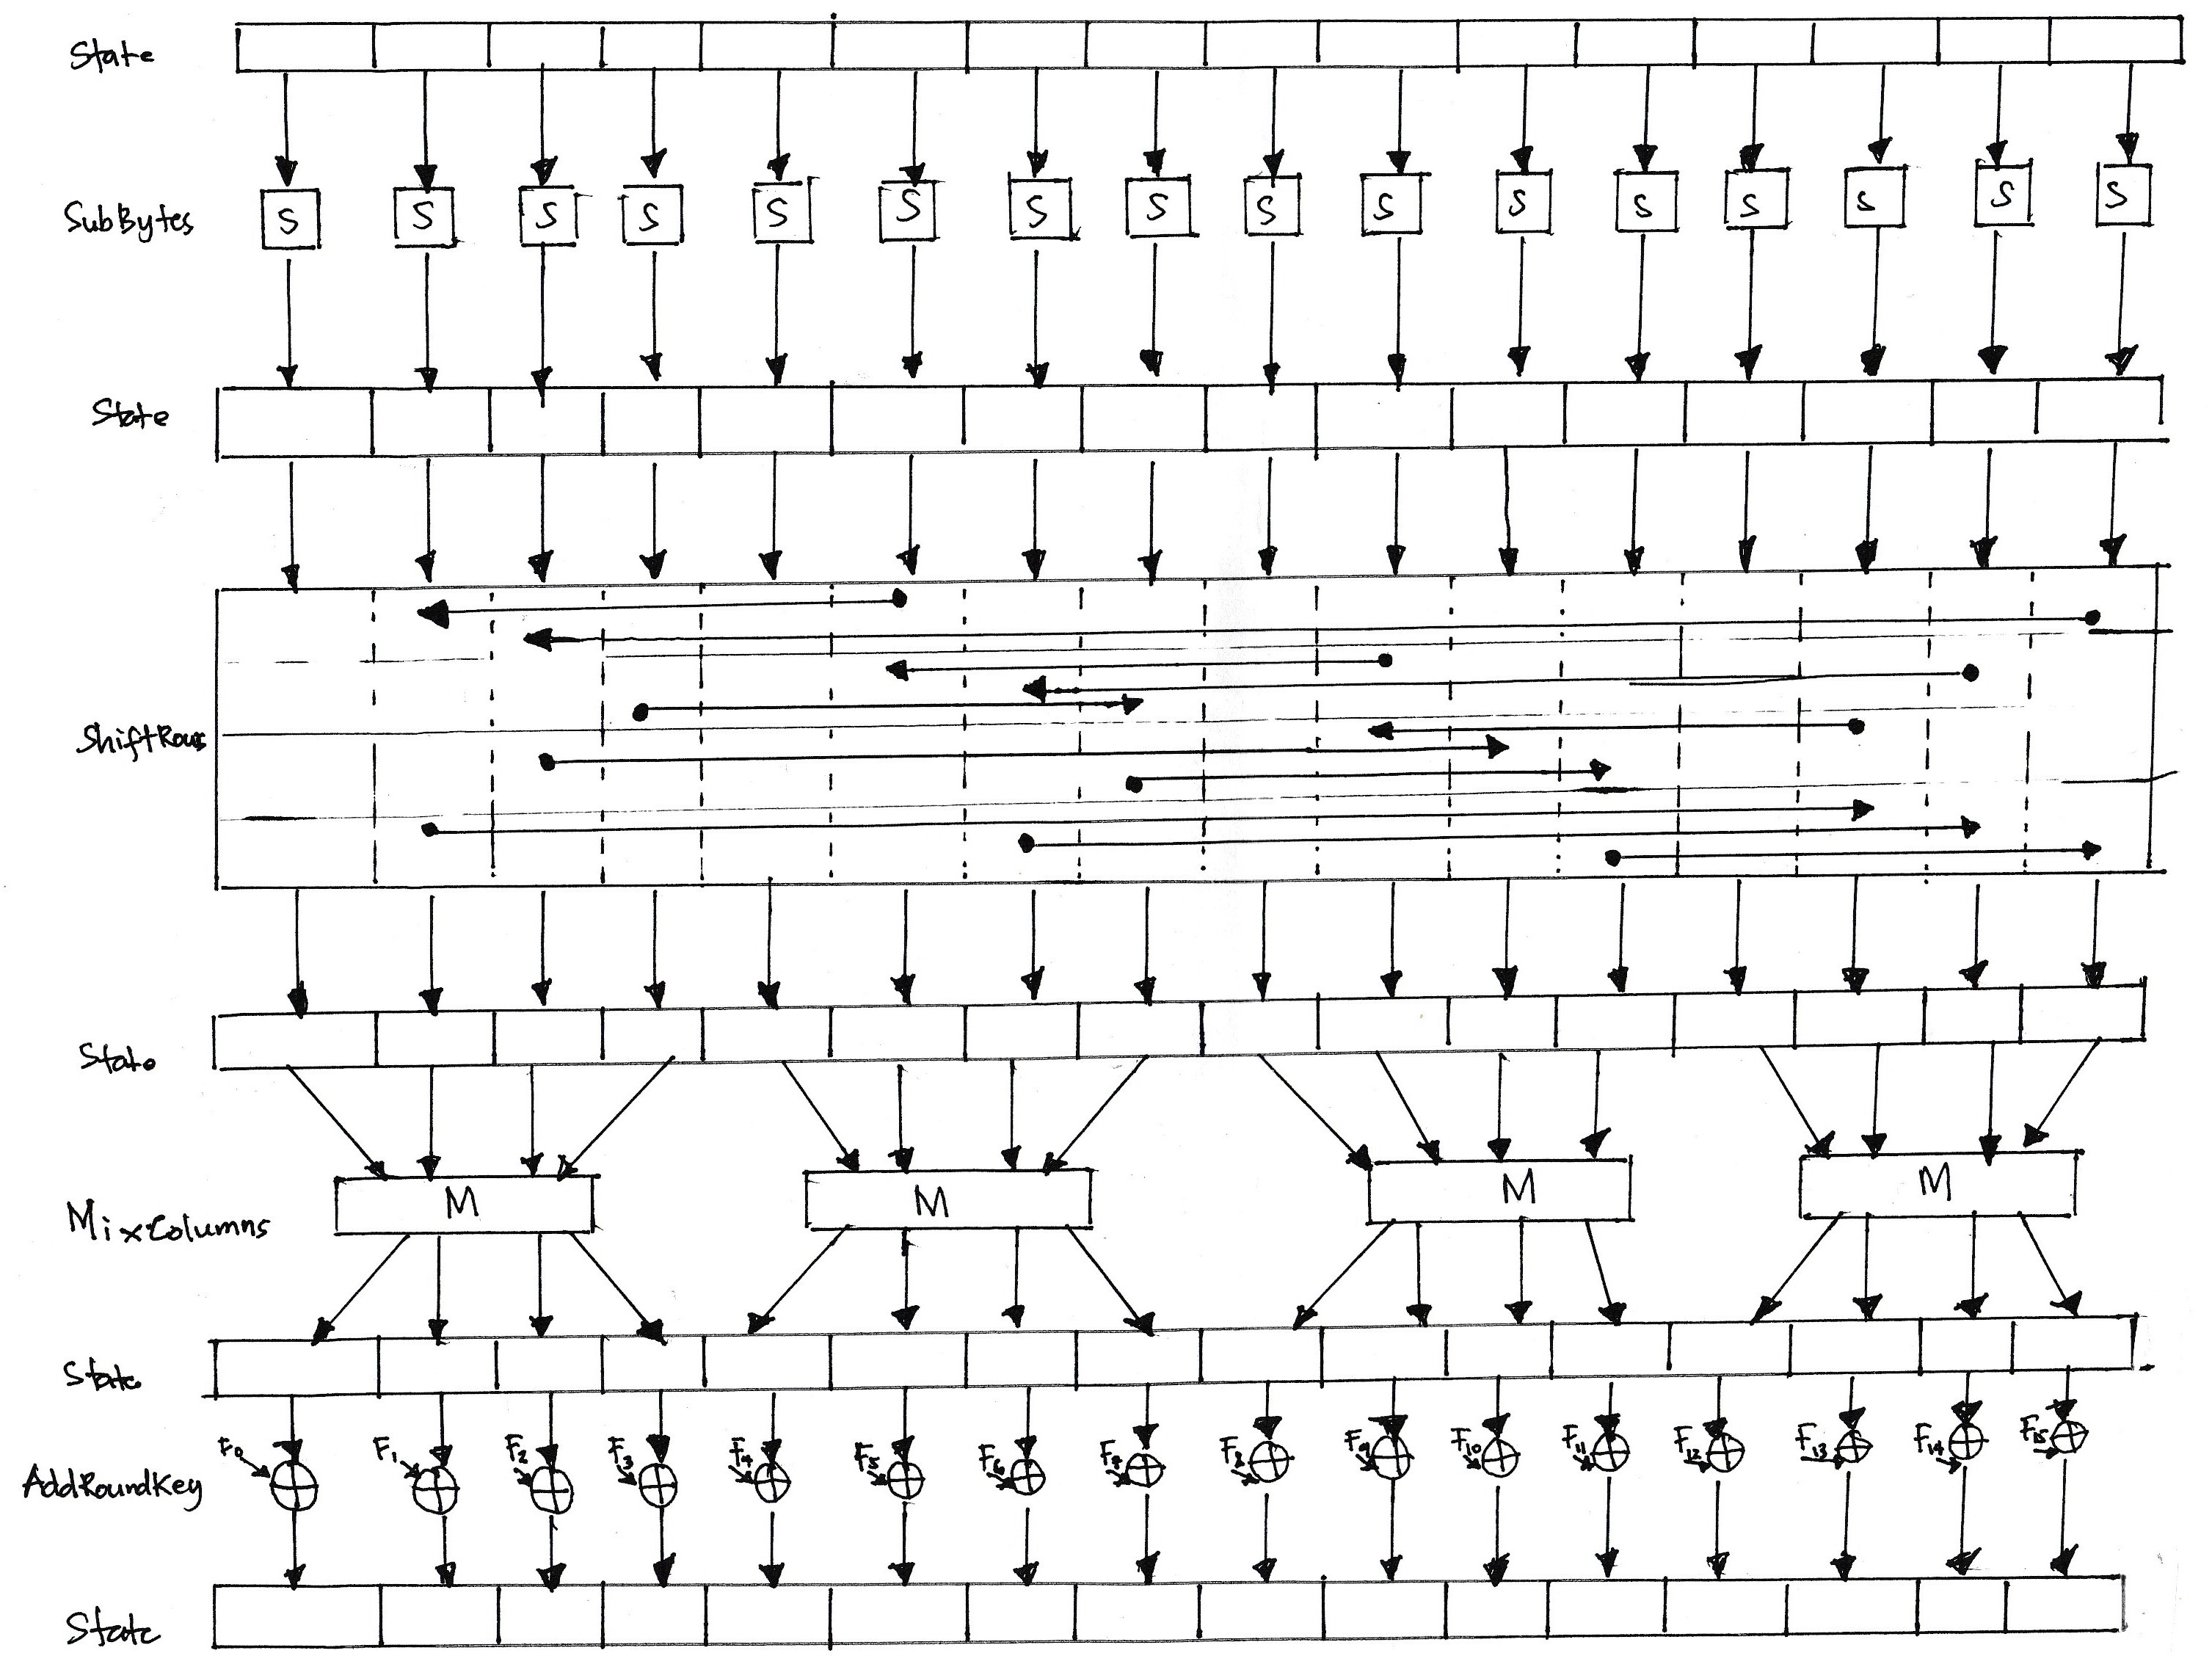 State
SubBytes
S S S S S S S S S S S S S S S S
State
ShiftRows
State
MixColumns
M M M M
State
F0 F1 F2 F3 F4 F5 F6 F7 F8 F9 F10 F11 F12 F13 F14 F15
AddRoundKey
State